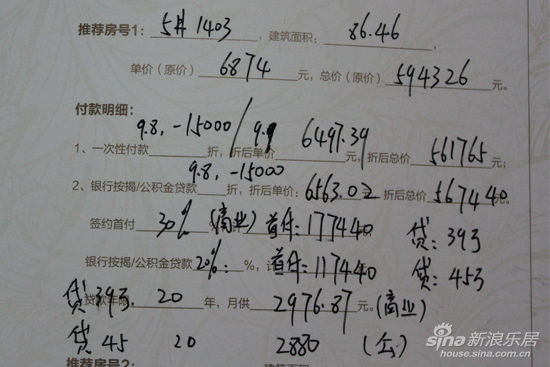 推荐房号1: 5# 1403 , 建筑面积: 86.46 ,
单价(原价) 6874 元, 总价(原价) 594326 元。
付款明细:
9.8, -15000 / 9.9 6497.39
1、一次性付款 折, 折后单价 元, 折后总价 561765 元;
9.8, -15000
2、银行按揭/公积金贷款 折, 折后单价: 6563.02 折后总价 567440
签约首付 30% (商业) 首付: 177440 贷: 39万
银行按揭/公积金贷款 20%: %, 首付: 117440 贷: 45万
贷39万. 贷款年限 20 年, 月供 2976.87 元。(商业)
贷45 20 2880 (公)
推荐房号2: 建筑面积:
sina新浪乐居
house.sina.com.cn